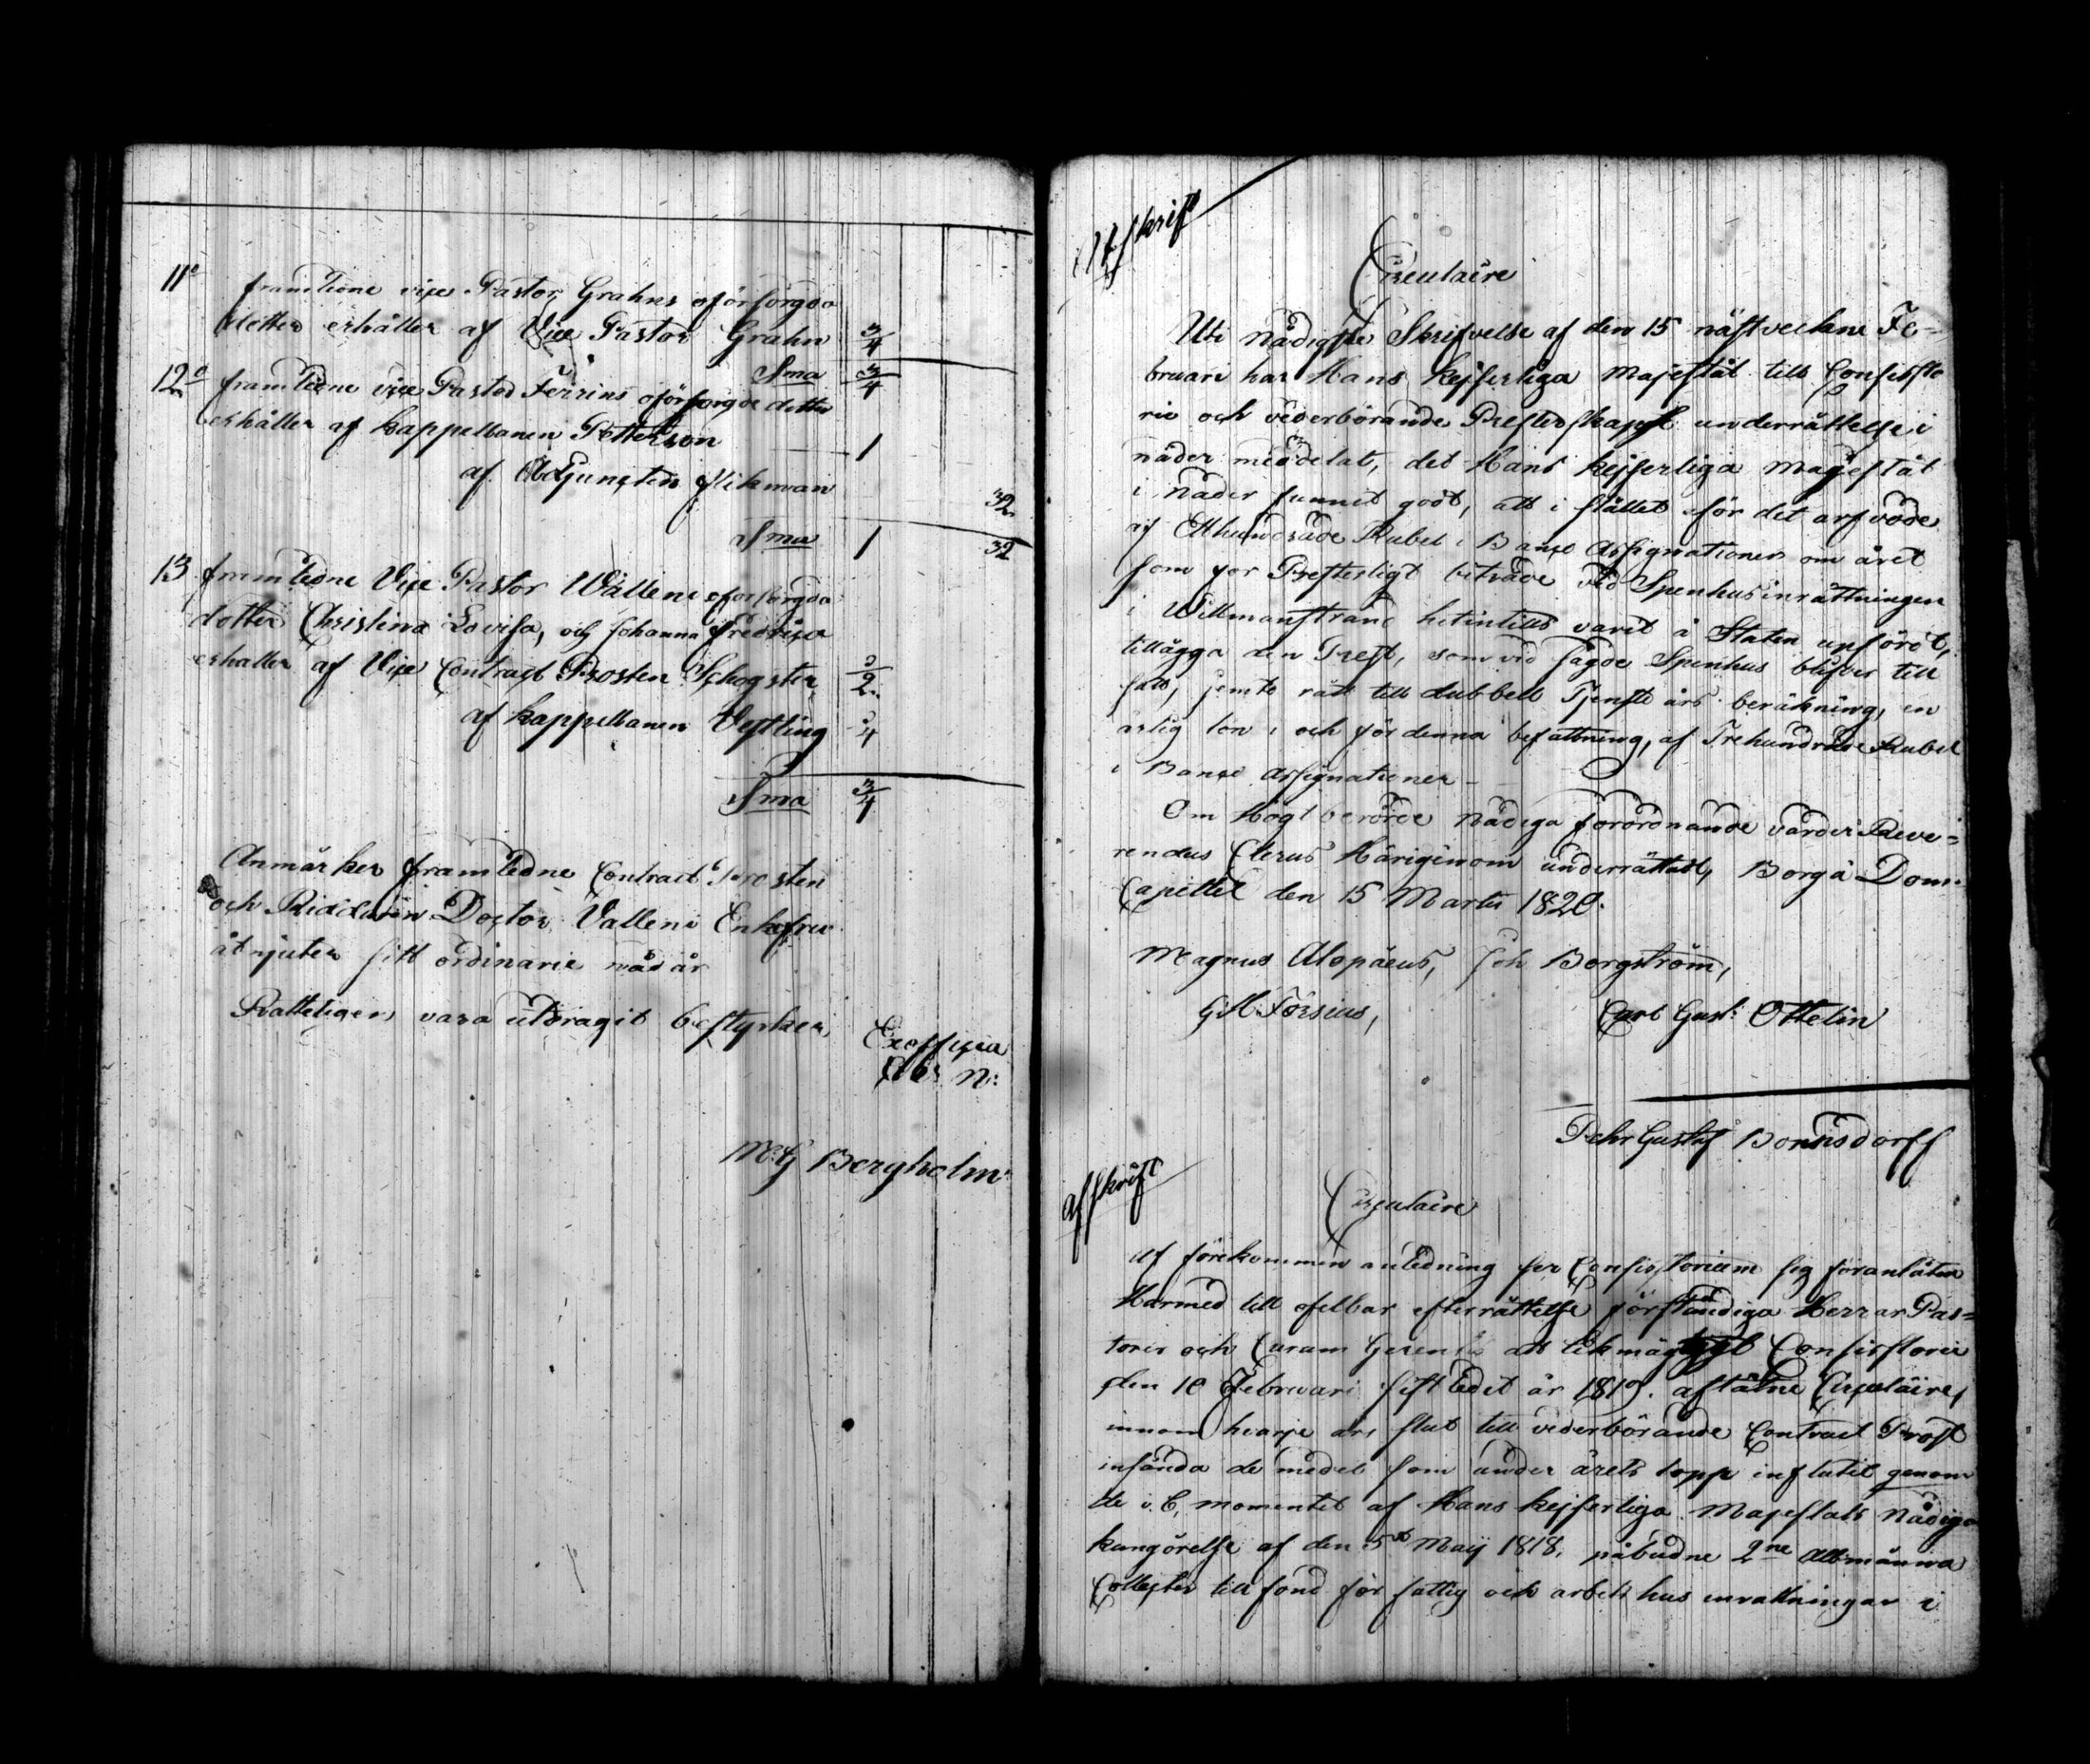 11o framledne vice Pastor Grahns oförsörgda
dotter erhåller af Vice Pastor Grahn 3/4
Sma 3/4
12o framledne vice Pastor Ferrins oförsörgde dotter
erhåller af kappellanen Petterson 1
af Adjuncten flikman 32
Sma 1 32
13 framledne Vice Pastor Walleni oförsörgda
dotter Christina Lovisa, och Johanna Fredrica
erhaller af Vice Contract Prosten Schogster 2
af kappellanen Vestling 4
Sma 3/4
Anmärkes framledne Contract Prosten
och Riddaren Doctor Walleni Enkefru
åtnjuter sitt ordinarie nådår
Rätteligen vara utdragit bestyrker,
Exofficia
N:
M:G Bergholm
Afskrift
Circulaire
Uti nådigste Skrifvelse af den 15 nästvekne Fe-
bruari har Hans kejserliga Majestät till Consisto
rie och vederbörande Presterskapet underrättelse i
nåder meddelat, det Hans kejserliga majestät
i nåder funnit godt, att i stället för det arfvode
af Etthundrade Rubel i Banco Assignationer om året
som for Presterligt biträde vid Spenhusinrättningen
i Willmanstrand hitintills varit å Staten upfördt,
tillägga den Prest, som vid sagde Spenhus blifver till
satt, jemte rätt till dubbell Tjenste års beräkning, en
årlig lön, och för denna befattning, af Trehundrade Rubel
i Banco Assignationer
Om Högtberörde nådiga förordnande varder Reve-
rendus Clerus Härigenom underrättad, Borgå Dom-
Capittel den 15 Martii 1820.
Magnus Alopäeus, Joh Borgström,
G.M. Forsius, Carl Gust: Ottelin
Pehr Gustaf Bonnsdorff
afskrift
Circulaire
Af förekommen anledning ser Consistorium sig föranlåten
Harmed till ofelbar efterrättelse förständiga Herrar Pas-
torer och Curam Gerentes att likmägtigt Consistorie
den 10 Februari sistledit år 1819. aflåtne Circulaire,
innom hvarje års slut till vederbörande Contract Prost
insända de medel som under årets lopp influtit genom
de i 6, momentet af Hans kejserliga Majestäts Nådiga
kungörelse af den 5 Maij 1818, påbudne 2ne allmänna
Collecter till fond för fattig och arbets hus inrattningar i